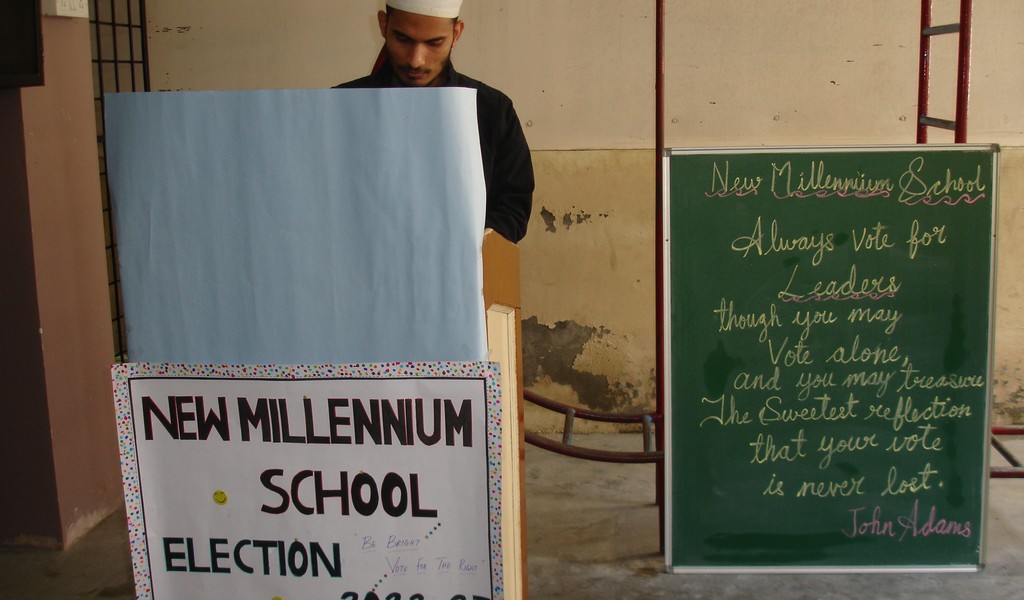 NEW MILLENNIUM
SCHOOL
ELECTION
"Be Bright
Vote For The Right"
New Millennium School
Always vote for
Leaders
though you may
Vote alone,
and you may treasure
The Sweetest reflection
that your vote
is never lost.
John Adams